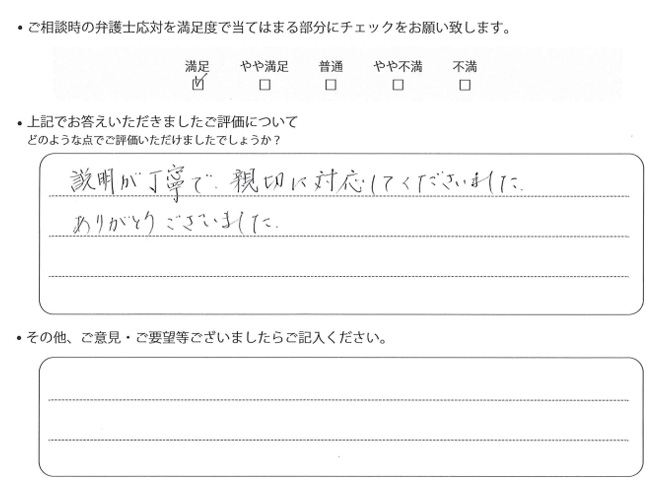 • ご相談時の弁護士応対を満足度で当てはまる部分にチェックをお願い致します。
満足 やや満足 普通 やや不満 不満
☑ □ □ □ □
• 上記でお答えいただきましたご評価について
どのような点でご評価いただけましたでしょうか？
説明が丁寧で、親切に対応してくださいました。
ありがとうございました。
• その他、ご意見・ご要望等ございましたらご記入ください。